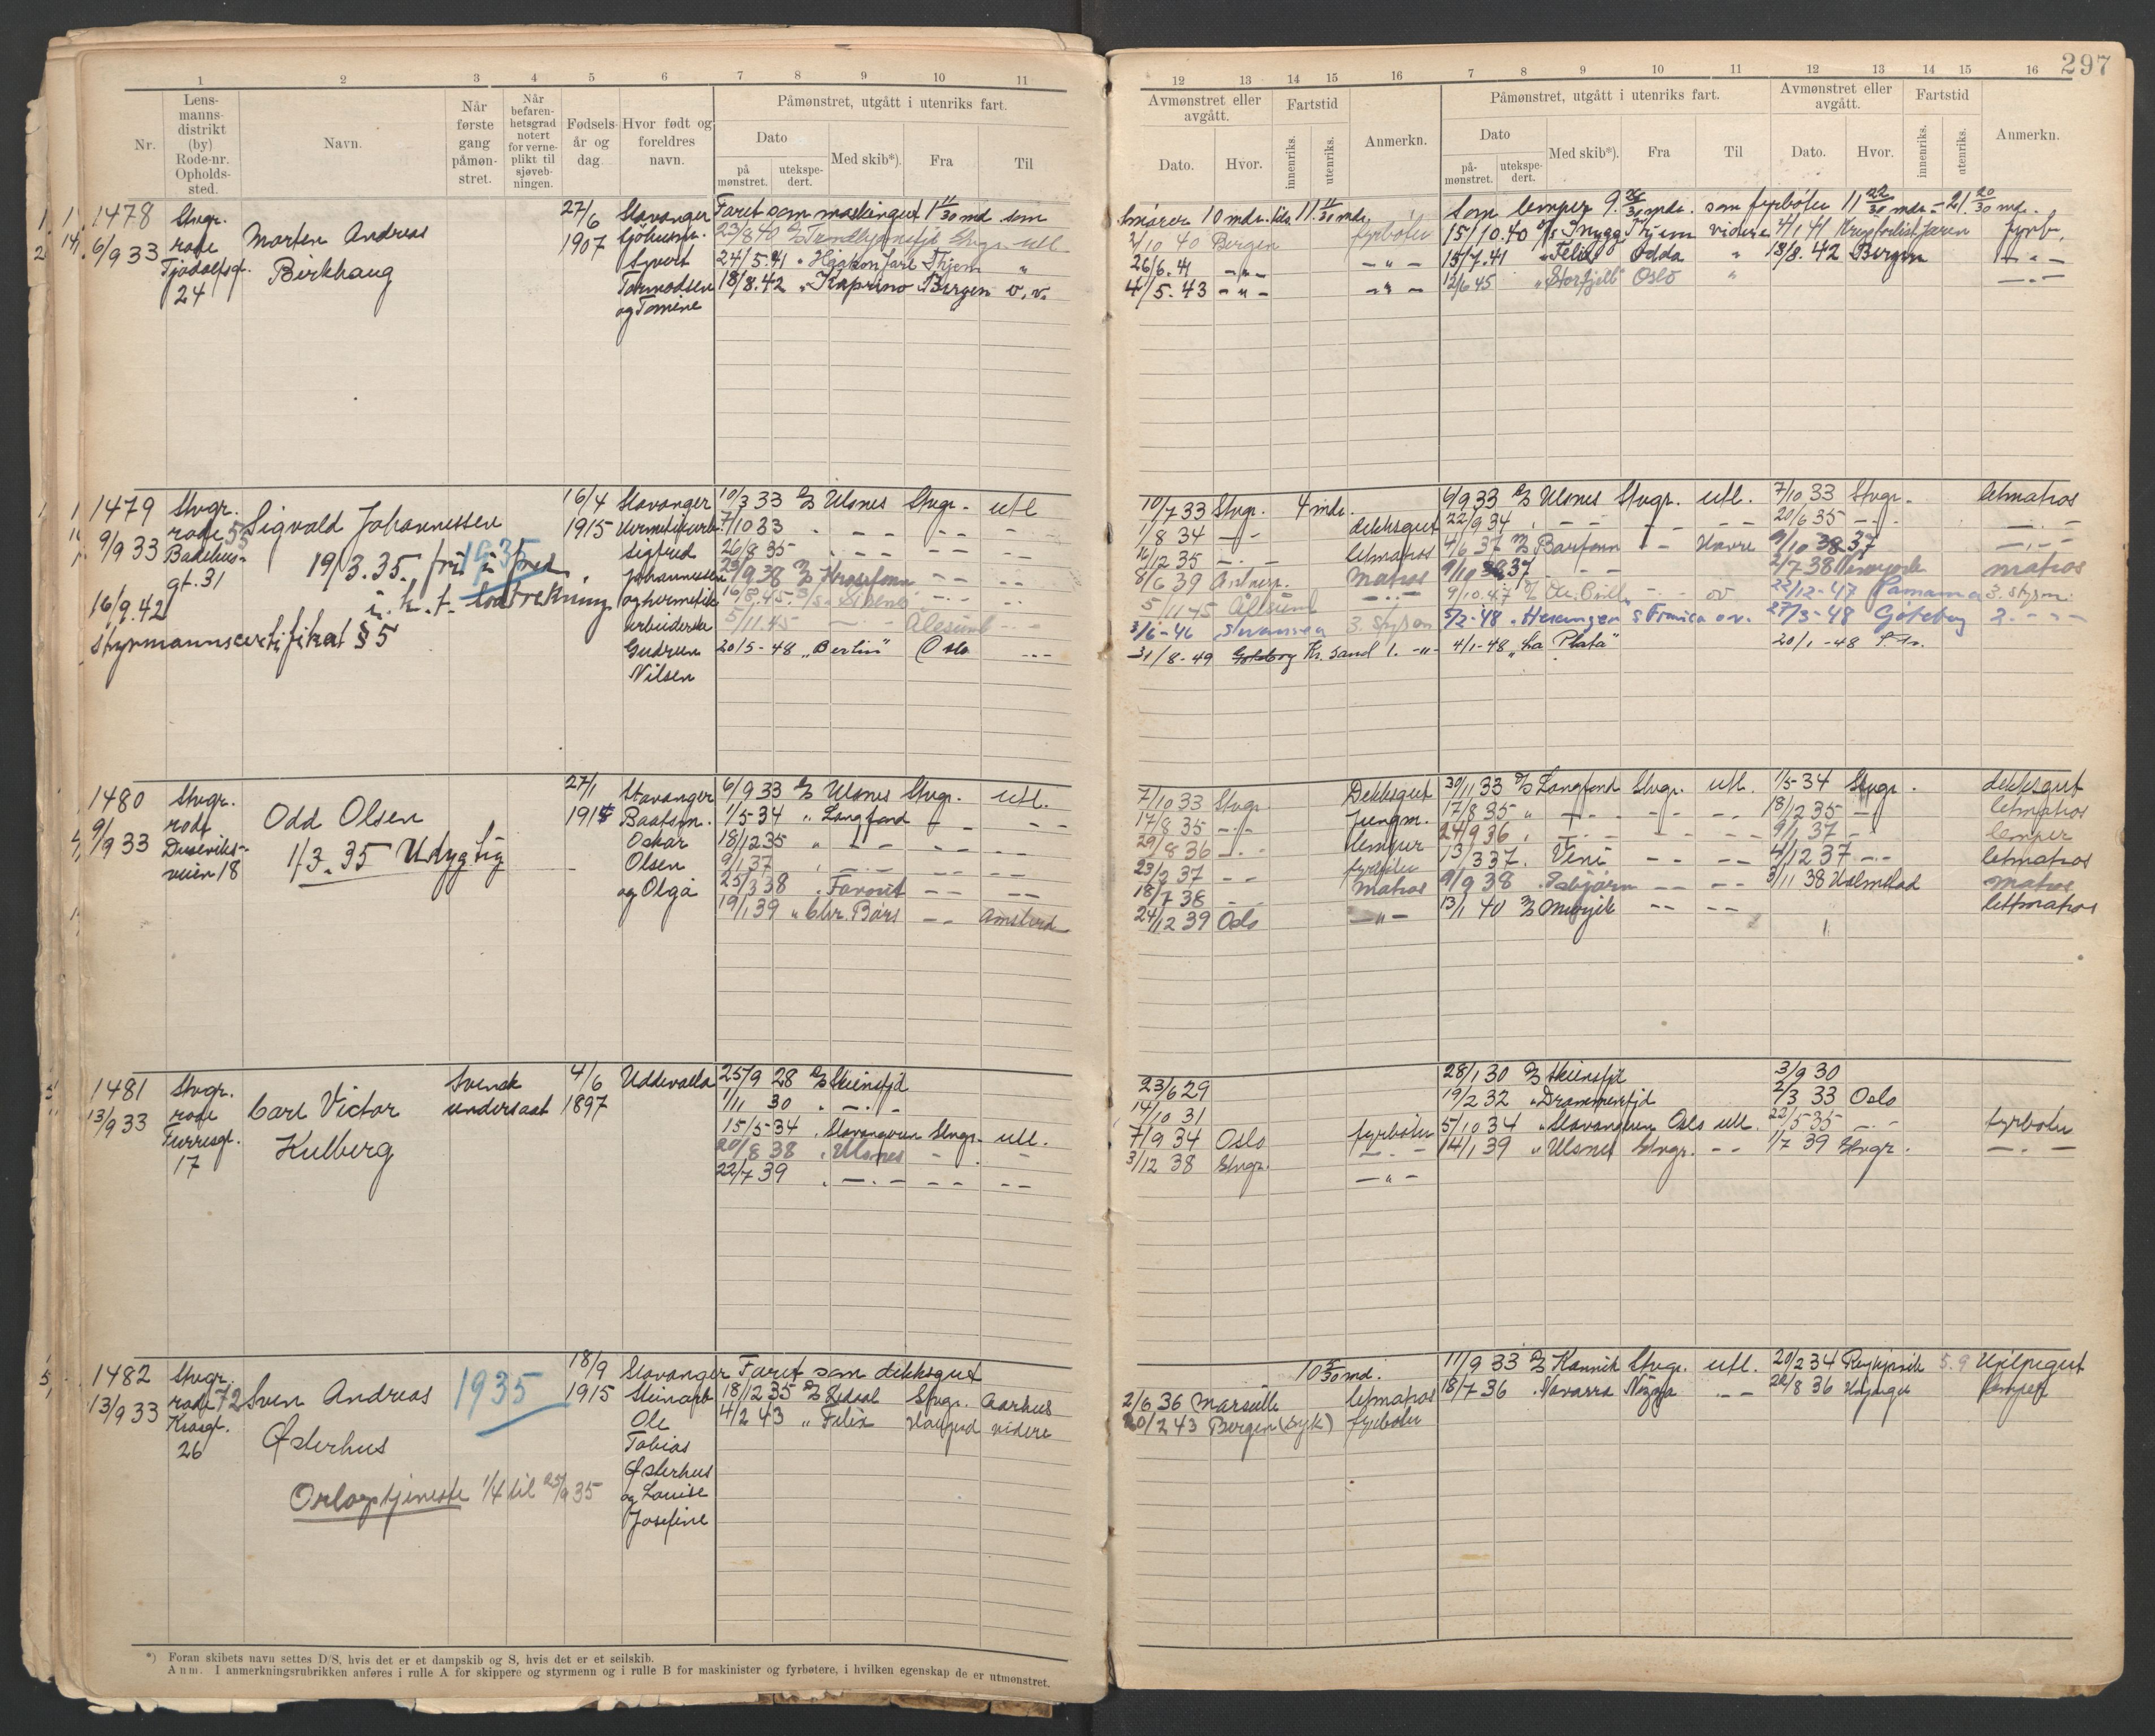 297
1 2 3 4 5 6 7 8 9 10 11
12 13 14 15 16 7 8 9 10 11 12 13 14 15 16
Nr.
Lens-
manns-
distrikt
(by)
Rode-nr.
Opholds-
sted.
Navn.
Når
første
gang
påmøn-
stret.
Når
befaren-
hetsgrad
notert
for verne-
plikt til
sjøveb-
ningen.
Fødsels-
år og
dag.
Hvor født og
foreldres
navn.
Påmønstret, utgått i utenriks fart.
Dato
på
mønstret.
utekspe-
dert.
Med skib*).
Fra
Til
Avmønstret eller
avgått.
Dato.
Hvor.
Fartstid
innenriks.
utenriks.
Anmerkn.
Påmønstret, utgått i utenriks fart.
Dato
på-
mønstret.
utekspe-
dert.
Med skib*).
Fra
Til
Avmønstret eller
avgått.
Dato.
Hvor.
Fartstid
innenriks.
utenriks.
Anmerkn.
1478
6/9 33
Stvgr.
rode
Tjodolfsgt.
24
Morten Andreas
Birkhaug
27/6
1907
Stavanger
Syvert
Tormodsen
og Tomine
Faret som maskingut 1 11/30 md som
23/8 40 Stvgr. utl.
24/5.41 " Haakon Jarl Thjem "
18/8.42 " Bergen o.v.
smører 10 mdr.
som lemper 9. 26/30 mdr. som fyrbøter 11 22/30 mdr. = 21. 20/30 md.
2/10 40 Bergen fyrbøter
26/6.41 - " - - " -
4/5.43 - " - - " -
15/10.40 D/S Snygg Thjem videre 4/1 41 fyrb.
15/7.41 " Felix Odda " 18/8.42 Bergen - " -
12/6 45 "Storfjell" Oslo " - " -
1479
9/9 33
Stvgr.
rode 55
Badehus-
gt. 31
Sigvald Johannessen
19/3.35. fri i fred
1935
i. h. t. lodtrekning
16/9.42
Styrmannscertifikat § 5
16/4
1915
Stavanger
Hermetikarb.
Sigfred
Johannessen
og hermetik
arbeiderske
Gudrun
Nilsen
10/3 33 D/S Ulsnes Stvgr. utl
7/10 33 " - - - - - -
26/8 35 - - - - - -
23/9 38 Krossfonn - - - -
16/8.45.
5/11.45 Ålesund - " -
20/5-48 "Berlin" Oslo - " -
10/7 33 Stvgr. 4 mdr.
1/8 34 - " - dekksgut
16/12 35 - . - letmatros
8/6 39 Antwerp. Matros
5/11 45 Ålesund - " -
3/6-46 Swansea 3. styrm
31/8-49 Kr. sand 1. - " -
6/9 33 D/S Ulsnes Stvgr. utl. 7/10 33 Stvgr. letmatros
22/9 34 " - - - - - - 20/6 35 - " - - " -
4/6 37 Barfonn - - Havre 9/10 37 - " -
9/10 37 - - - 2/7 38 Newyork matros
9/10.47 ov 22/12-47 Panama 3. styrm.
5/2-48 " Hexungen S Francisco o.v. 27/3-48 Gøteborg 2. - " -
4/1-48 "La Plata" 20/1-48
1480
9/9 33
Stvgr.
rode
Duseviks-
veien 18
Odd Olsen
1/3. 35 Udygtig
27/1
1915
Stavanger
Baatsm.
Oskar
Olsen
og Olga
6/9 33 D/S Ulsnes Stvgr. utl.
1/5-34 " Langfond - - - -
18/12 35 " - - - - - -
9/1 37 " - - - - - -
25/3 38 " Favorit - - - -
19/1 39 " Chr. Børs - - Amsterd
7/10 33 Stvgr. Dekksgut
17/8 35 - " - Jungm.
29/8 36 - " - lemper
23/2 37 - - fyrbøter
18/7 38 - - Matros
24/12 39 Oslo - " -
30/11 33 D/S Langfond Stvgr. utl. 1/5-34 Stvgr. dekksgut
17/8 35 " - - - - - - 18/12 35 - " - letmatros
24/9 36 " - - - - - - 9/1 37 - " - lemper
13/3 37 " Veni - - - - 4/12 37 - " - letmatros
9/9 38 " Isbjørn - - - - 3/11 38 Halmstad matros
13/1 40 - - - - letmatros
1481
13/9 33
Stvgr.
rode
Furrasgt.
17
Carl Victor
Kulberg
Svensk
undersaat
4/6
1897
Uddevalla
25/9 28 D/S Skiensfjd
1/11 30 " - " -
15/5-34 " Stavangeren Stvgr. utl.
20/8 38 " Ulsnes - -
22/7 39 " - " - - - - -
23/6 29
14/10 31
7/9 34 Oslo fyrbøter
3/12 38 Stvgr. - " -
- " -
28/1 30 D/S Skiensfjd 3/9 30
19/2 32 " Drammensfjd 2/3 33 Oslo
5/10 34 " Stavangeren Oslo utl. 22/5-35 - " - fyrbøter
14/1 39 " Ulsnes Stvgr. - - 1/7 39 Stvgr. - " -
1482
13/9 33
Stvgr.
rode 72
Kirkegt.
26
Sven Andreas
Østerhus
1935
Orlogstjeneste 1/4 til 25/9 35
18/9
1915
Stavanger
Stenarb
Ole
Tobias
Østerhus
og Louise
Josefine
Faret som dekksgut
18/12 35 D/S Sidaal Stvgr. Aarhus
4/2 43 " Felix Haugesund videre
10 5/30 md.
2/6 36 Marseille letmatros
20/2 43 Bergen (syk) fyrbøter
11/9 33 D/S Kannik Stvgr. utl. 20/2 34 Reykjavik 5.9 Hjelpegut
18/7 36 " Navarra - - 22/8 36 lemper
*) Foran skibets navn settes D/S, hvis det er et dampskib og S, hvis det er et seilskib.
Anm. I anmerkningsrubrikken anføres i rulle A for skippere og styrmenn og i rulle B for maskinister og fyrbøtere, i hvilken egenskap de er utmønstret.